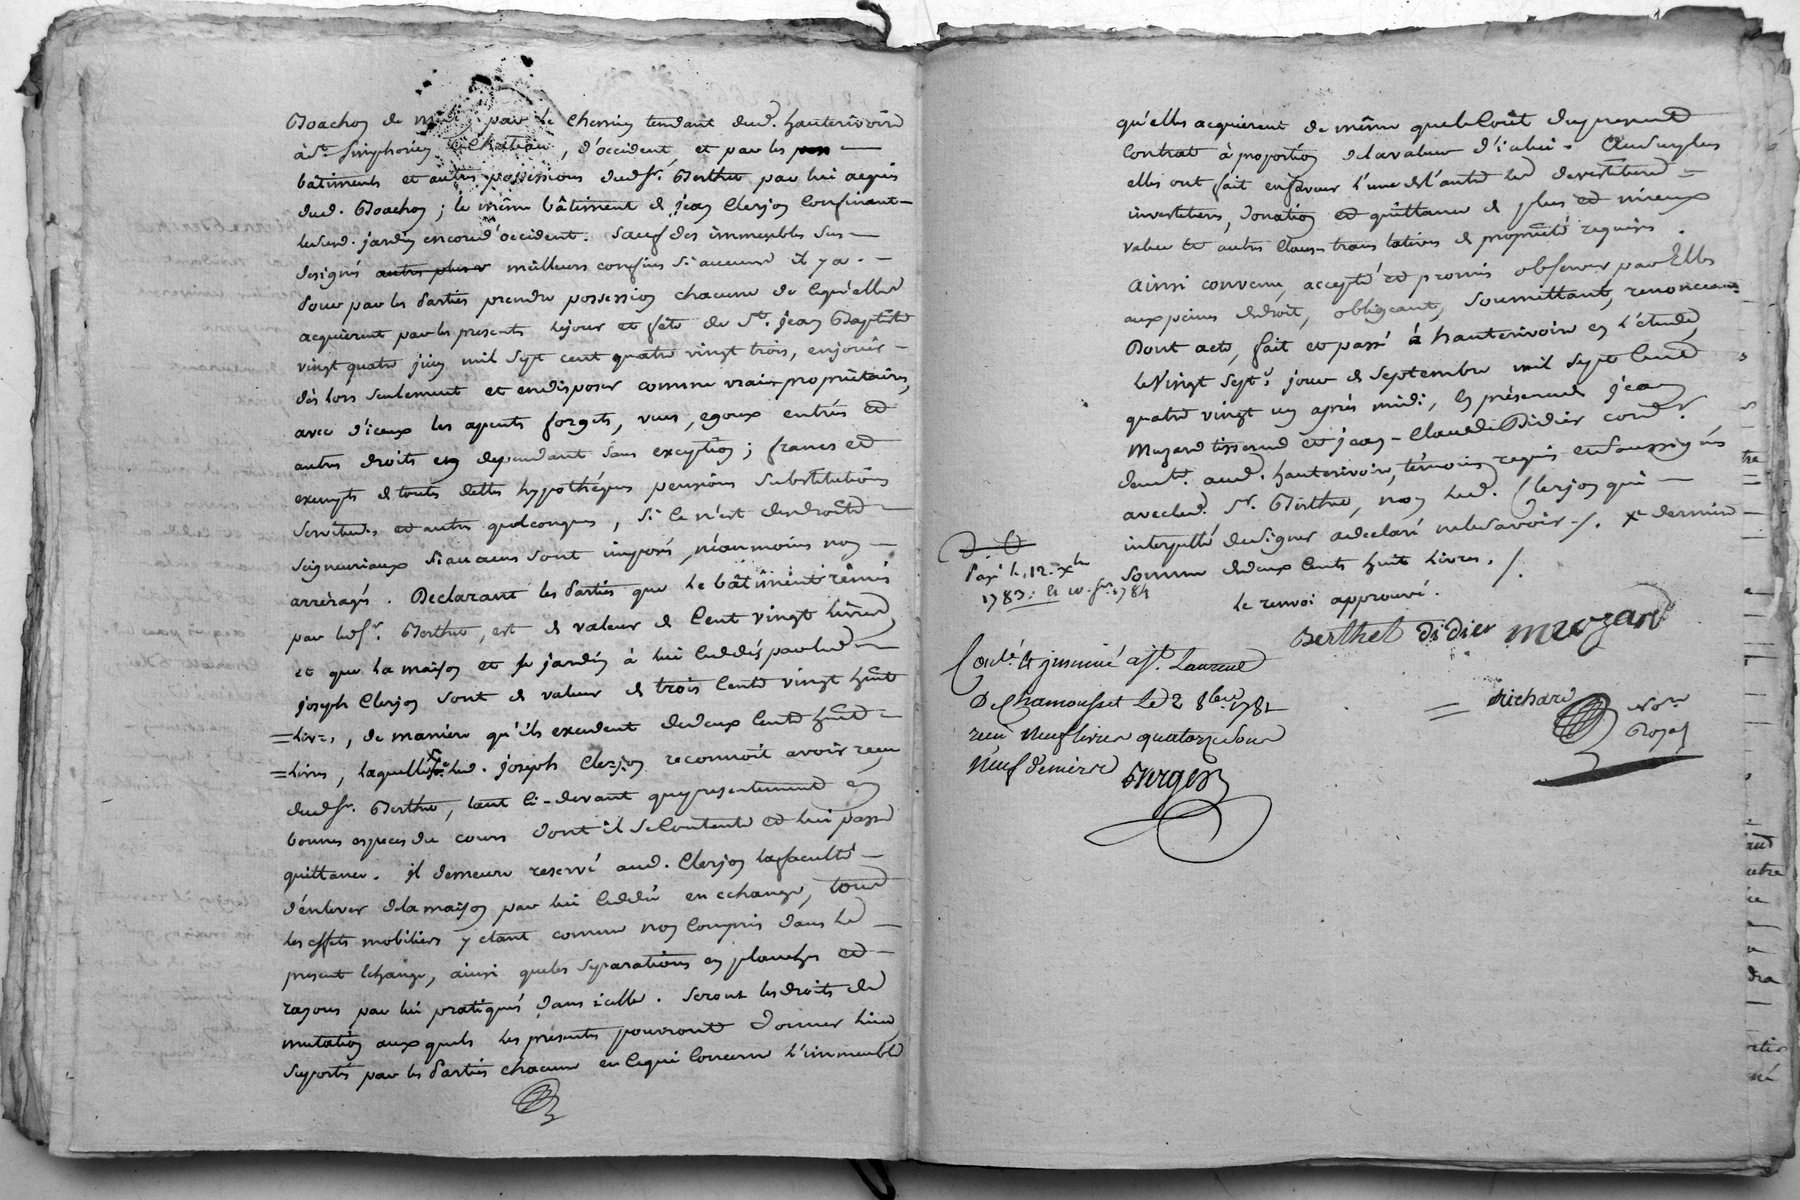 Boachon de midi par le Chemin tendant dud. hauterivoire
à St. Simphorien le Chateau, d'occident, et par les
bâtiments et autres possessions dud Sr. Berthet par lui acquis
dud. Boachon; le même bâtiment de jean Clerjon Confinant
led. jardin encore d'occident. Sauf des immeubles sus
designés meilleurs confins si aucuns il y a.
Pour par les Parties prendre possession chacune de ce qu'elles
acquièrent par les presentes le jour et fête de St. jean Baptiste
vingt quatre juin mil sept cent quatre vingt trois, en jouir
dès lors seulement et en disposer comme vrais propriètaires,
avec d'iceux les apents forgets, vues, egoux entrés et
autres droits en dependant sans exception; francs et
exempts de touts dettes hypothéques pensions substitutions
Servitudes et autres quelconques, si ce n'est des droits
Seigneuriaux si aucuns sont imposés, néanmoins non
arrèragés. Declarant les Parties que le bâtiment rémis
par led Sr. Berthet, est de valeur de Cent vingt livres,
et que la maison et jardin à lui Cèddés par led.
joseph Clerjon sont de valeur de trois Cents vingt huit
livres, de maniere qu'ils excedent de deux Cents huit
livres, laquelle led. joseph Clerjon reconnoit avoir reçu
dud Sr. Berthet, tant ci-devant que presentement en
bonnes especes du cours dont il se Contente et lui passe
quittance. il demeure reservé aud. Clerjon la faculté
d'enlever de la maison par lui Ceddée en echange, tous
les effets mobiliers y etant comme non Compris dans le
present Echange, ainsi que les separations en planches et
rayons par lui pratiqués dans icelle. Seront les droits de
mutation aux quels les presentes pourront donner lieu
suportés par les Parties chacune en ce qui Concerne l'immeuble
qu'elles acquierent de même que le Coût du present
Contrat à proportion de la valeur d'icelui. Au surplus
elles ont fait en faveur l'une de l'autre les devestitures
investitures, donation et quittance de plus et mieux
value et autres Clauses translatives de proprieté requises.
Ainsi convenu, accepté et promis observer par Elles
aux peines de droit, obligeant, Soumettant, renonceant
Dont acte, fait et passé à hauterivoire en l'étude,
le Vingt Sept. jour de Septembre mil Sept Cent
quatre vingt un après midi, En présence jean
Mazard tisserand et jean-Claude Didier cord.r
demt. aud. hauterivoire, témoins requis et soussignés
avec led. Sr. Berthet, non led. Clerjon qui
interpellé de signer a declaré ne le savoir /. derniere
Somme de deux Cents huit livres. /.
le renvoi approuvé.
Berthet didier mazard
richard
Not.re
Royal
Payé le 12. Xbre
1783. 1784
Contlé. & insinué à St. Laurent
De Chamousset le 2 8bre 1781
reçu Neuf livres quatorze sous
Neuf deniers
Vergez